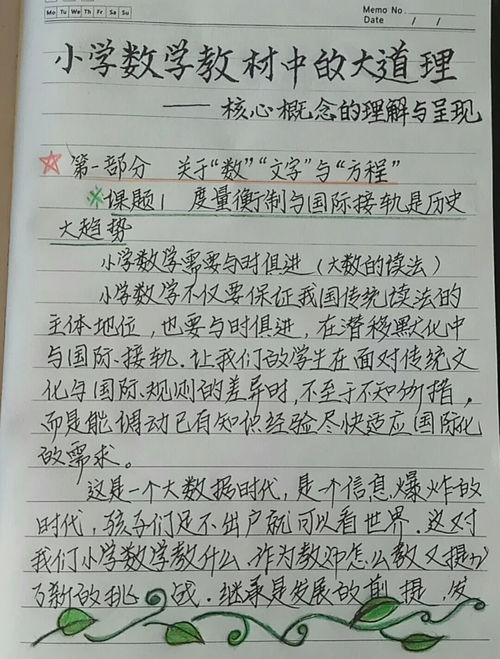 Mo Tu We Th Fr Sa Su
Memo No.
Date / /
小学数学教材中的大道理
——核心概念的理解与呈现
第一部分 关于“数”“文字”与“方程”
课题1 度量衡制与国际接轨是历史
大趋势
小学数学需要与时俱进（大数的读法）
小学数学不仅要保证我国传统读法的
主体地位，也要与时俱进，在潜移默化中
与国际接轨.让我们的学生在面对传统文
化与国际规则的差异时，不至于不知所措，
而是能调动已有知识经验尽快适应国际化
的需求。
这是一个大数据时代，是个信息爆炸的
时代，孩子们足不出户就可以看世界.这对
我们小学数学教什么、作为教师怎么教又提出
了新的挑战.继承是发展的前提，发